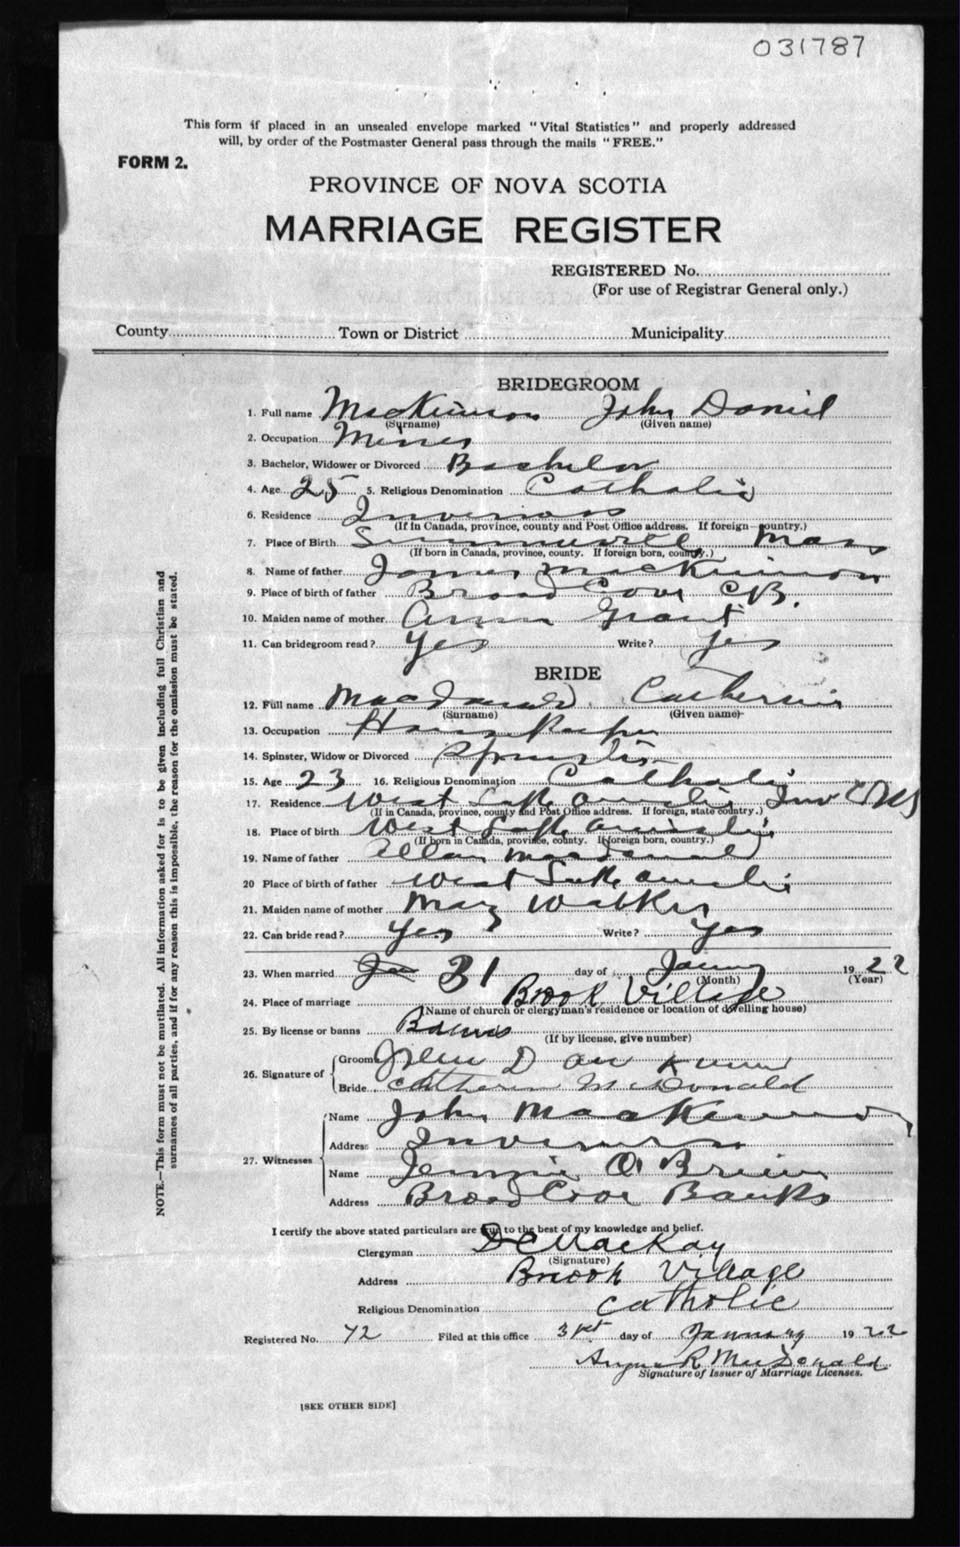 031787
This form if placed in an unsealed envelope marked "Vital Statistics" and properly addressed
will, by order of the Postmaster General pass through the mails "FREE."
FORM 2.
PROVINCE OF NOVA SCOTIA
MARRIAGE REGISTER
REGISTERED No.
(For use of Registrar General only.)
County Town or District Municipality
BRIDEGROOM
1. Full name MacKinnon John Daniel
(Surname) (Given name)
2. Occupation Miner
3. Bachelor, Widower or Divorced Bachelor
4. Age 25 5. Religious Denomination Catholic
6. Residence Inverness
(If in Canada, province, county and Post Office address. If foreign country.)
7. Place of Birth Mass
(If born in Canada, province, county. If foreign born, country.)
8. Name of father James MacKinnon
9. Place of birth of father Broad Cove CB.
10. Maiden name of mother Ann Grant
11. Can bridegroom read? Yes Write? Yes
BRIDE
12. Full name MacDonald Catherine
(Surname) (Given name)
13. Occupation House Keeper
14. Spinster, Widow or Divorced Spinster
15. Age 23 16. Religious Denomination Catholic
17. Residence West Lake Ainslie Inv Co NS
(If in Canada, province, county and Post Office address. If foreign, state country.)
18. Place of birth West Lake Ainslie
(If born in Canada, province, county. If foreign born, country.)
19. Name of father Allan MacDonald
20 Place of birth of father West Lake Ainslie
21. Maiden name of mother Mary Walker
22. Can bride read? Yes Write? Yes
23. When married 31 day of January 1922
(Month) (Year)
24. Place of marriage Brook Village
(Name of church or clergyman's residence or location of dwelling house)
25. By license or banns Banns
(If by license, give number)
26. Signature of
Groom John D
Bride Catherine McDonald
27. Witnesses
Name John MacKinnon
Address Inverness
Name Jennie O'Brien
Address Broad Cove Banks
I certify the above stated particulars are true to the best of my knowledge and belief.
Clergyman D C MacKay
(Signature)
Address Brook Village
Religious Denomination Catholic
Registered No. 72 Filed at this office 31st day of January 1922
Angus R MacDonald
Signature of Issuer of Marriage Licenses.
[SEE OTHER SIDE]
NOTE.—This form must not be mutilated. All information asked for is to be given including full Christian and
surnames of all parties, and if for any reason this is impossible, the reason for the omission must be stated.